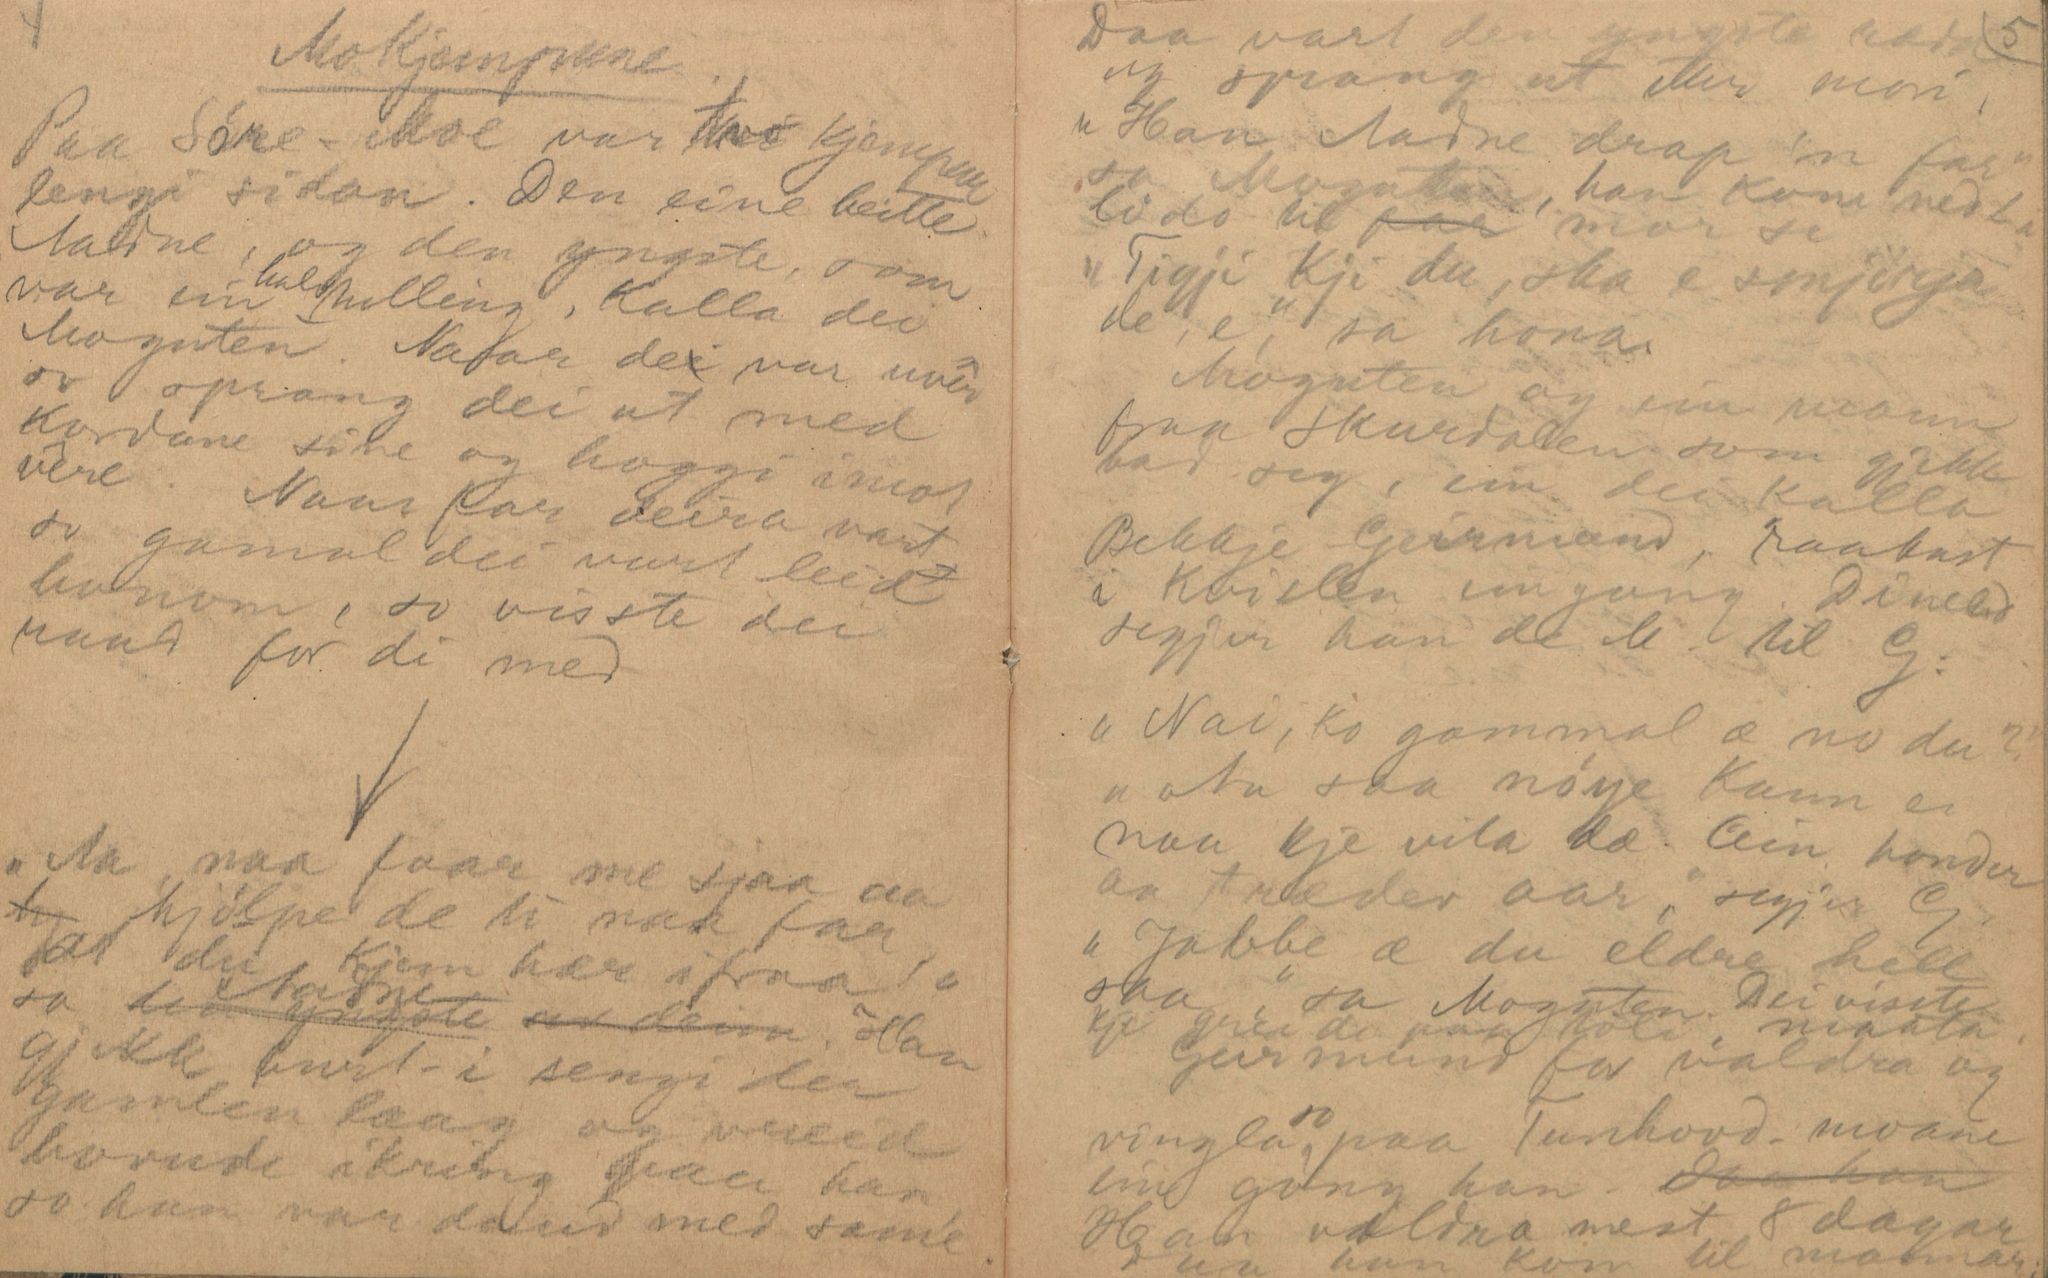 Mokjempune.
Paa Søre-Moe var two kjempur
lengi sidan. Den eine heitte
Aadne, og den yngste, som
var ein halv hulling, kalla dei
Moguten. Naar dei var uvêr
so sprang dei ut med
kordane sine og hoggi imot
vêre. Naar far deira vart
so gamal dei vart leid
honom, so visste dei
raad for di med
"Aa, naa faar me sjaa aa
hjölpe de ti naa far,
at du kjem her ifraa!"
sa Aadne den yngste av deim. Han
gjekk burt-i sengi der
gamlen laag og vreid
hovude ikring paa han
so han var daud med same.
5
Daa vart den yngste rædd
og sprang ut ter mori,
"Han Aadne drap 'n far"
sa Moguten, han kom
til far mor si
"Tigji kji du, ska e smjörja
de, e," sa hona.
Moguten og ein mann
fraa Skurdalen som gjekk
bad seg, ein dei kalla
Bekkje Geirmund, raabast
i Kvislen eingong.
segjer han de M. til G:
"Nai, ko gammal æ no du?"
saa nöye kann e
naa kje vita dæ. Ein honder
aa træder aar," segjer G.
"Jabbe æ du eldre hell
saa," sa Moguten. Dei visste
kje grei di paa toli, maata.
Geirmund for valdra og
vingla so paa Tunhovd-moane
ein gong han. Daa han
Han valdra mest 8 dagar
Daa han kom til mannar;